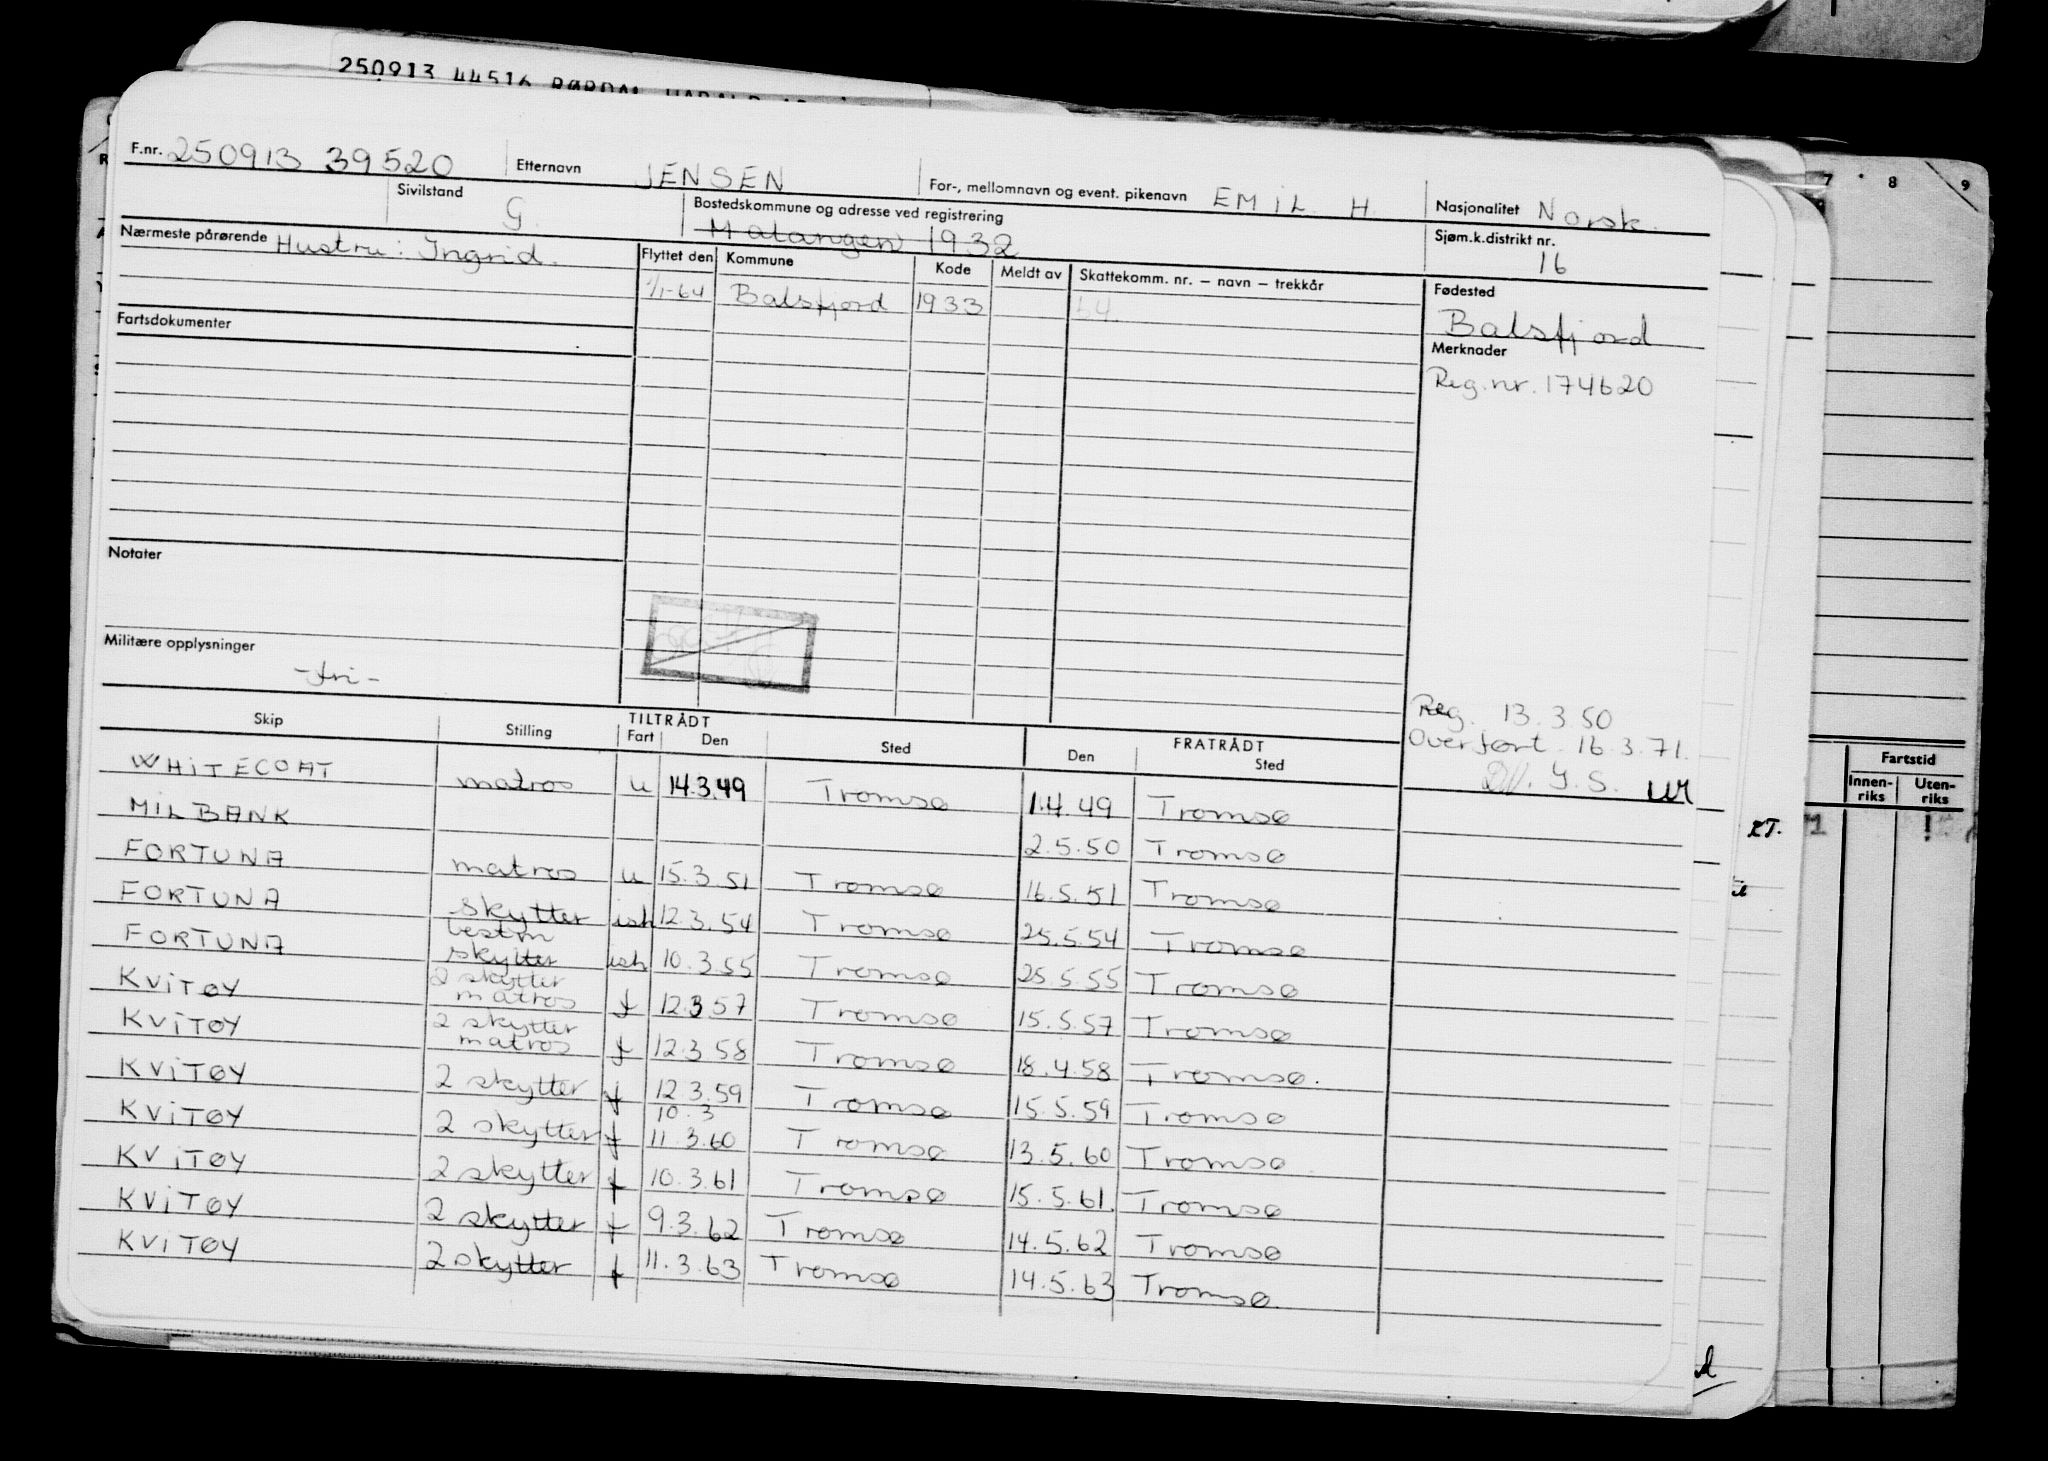 250913 44516
F.nr. 250913 39520 Etternavn JENSEN For-, mellomnavn og event. pikenavn EMIL H. Nasjonalitet Norsk.
Sivilstand G. Bostedskommune og adresse ved registrering Malangen 1932 Sjøm.k.distrikt nr. 16
Nærmeste pårørende Hustru: Ingrid.
Flyttet den Kommune Kode Meldt av Skattekomm. nr. – navn – trekkår Fødested
1/1-64 Balsfjord 1933 64. Balsfjord
Fartsdokumenter
Merknader
Reg.nr. 174620
Notater
Militære opplysninger
-fri-
Reg. 13.3.50
Overført. 16.3.71.
Skip Stilling TILTRÅDT FRATRÅDT
Fart Den Sted Den Sted
WHITECOAT matros u 14.3.49 Tromsø 1.4.49 Tromsø
MILBANK 2.5.50 Tromsø
FORTUNA matros u 15.3.51 Tromsø 16.5.51 Tromsø
FORTUNA skytter ish 12.3.54 Tromsø 25.5.54 Tromsø
FORTUNA bestm skytter ish 10.3.55 Tromsø 25.5.55 Tromsø
KVITØY 2 skytter matros f 12.3.57 Tromsø 15.5.57 Tromsø
KVITØY 2 skytter matros f 12.3.58 Tromsø 18.4.58 Tromsø.
KVITØY 2 skytter f 12.3.59 Tromsø 15.5.59 Tromsø
10.3
KVITØY 2 skytter f 11.3.60 Tromsø 13.5.60 Tromsø
KVITØY 2 skytter f 10.3.61 Tromsø 15.5.61. Tromsø
KVITØY 2 skytter f 9.3.62 Tromsø 14.5.62 Tromsø
KVITØY 2 skytter f 11.3.63 Tromsø 14.5.63 Tromsø.
7 8 9
Fartstid
Innen-
riks
Uten-
riks